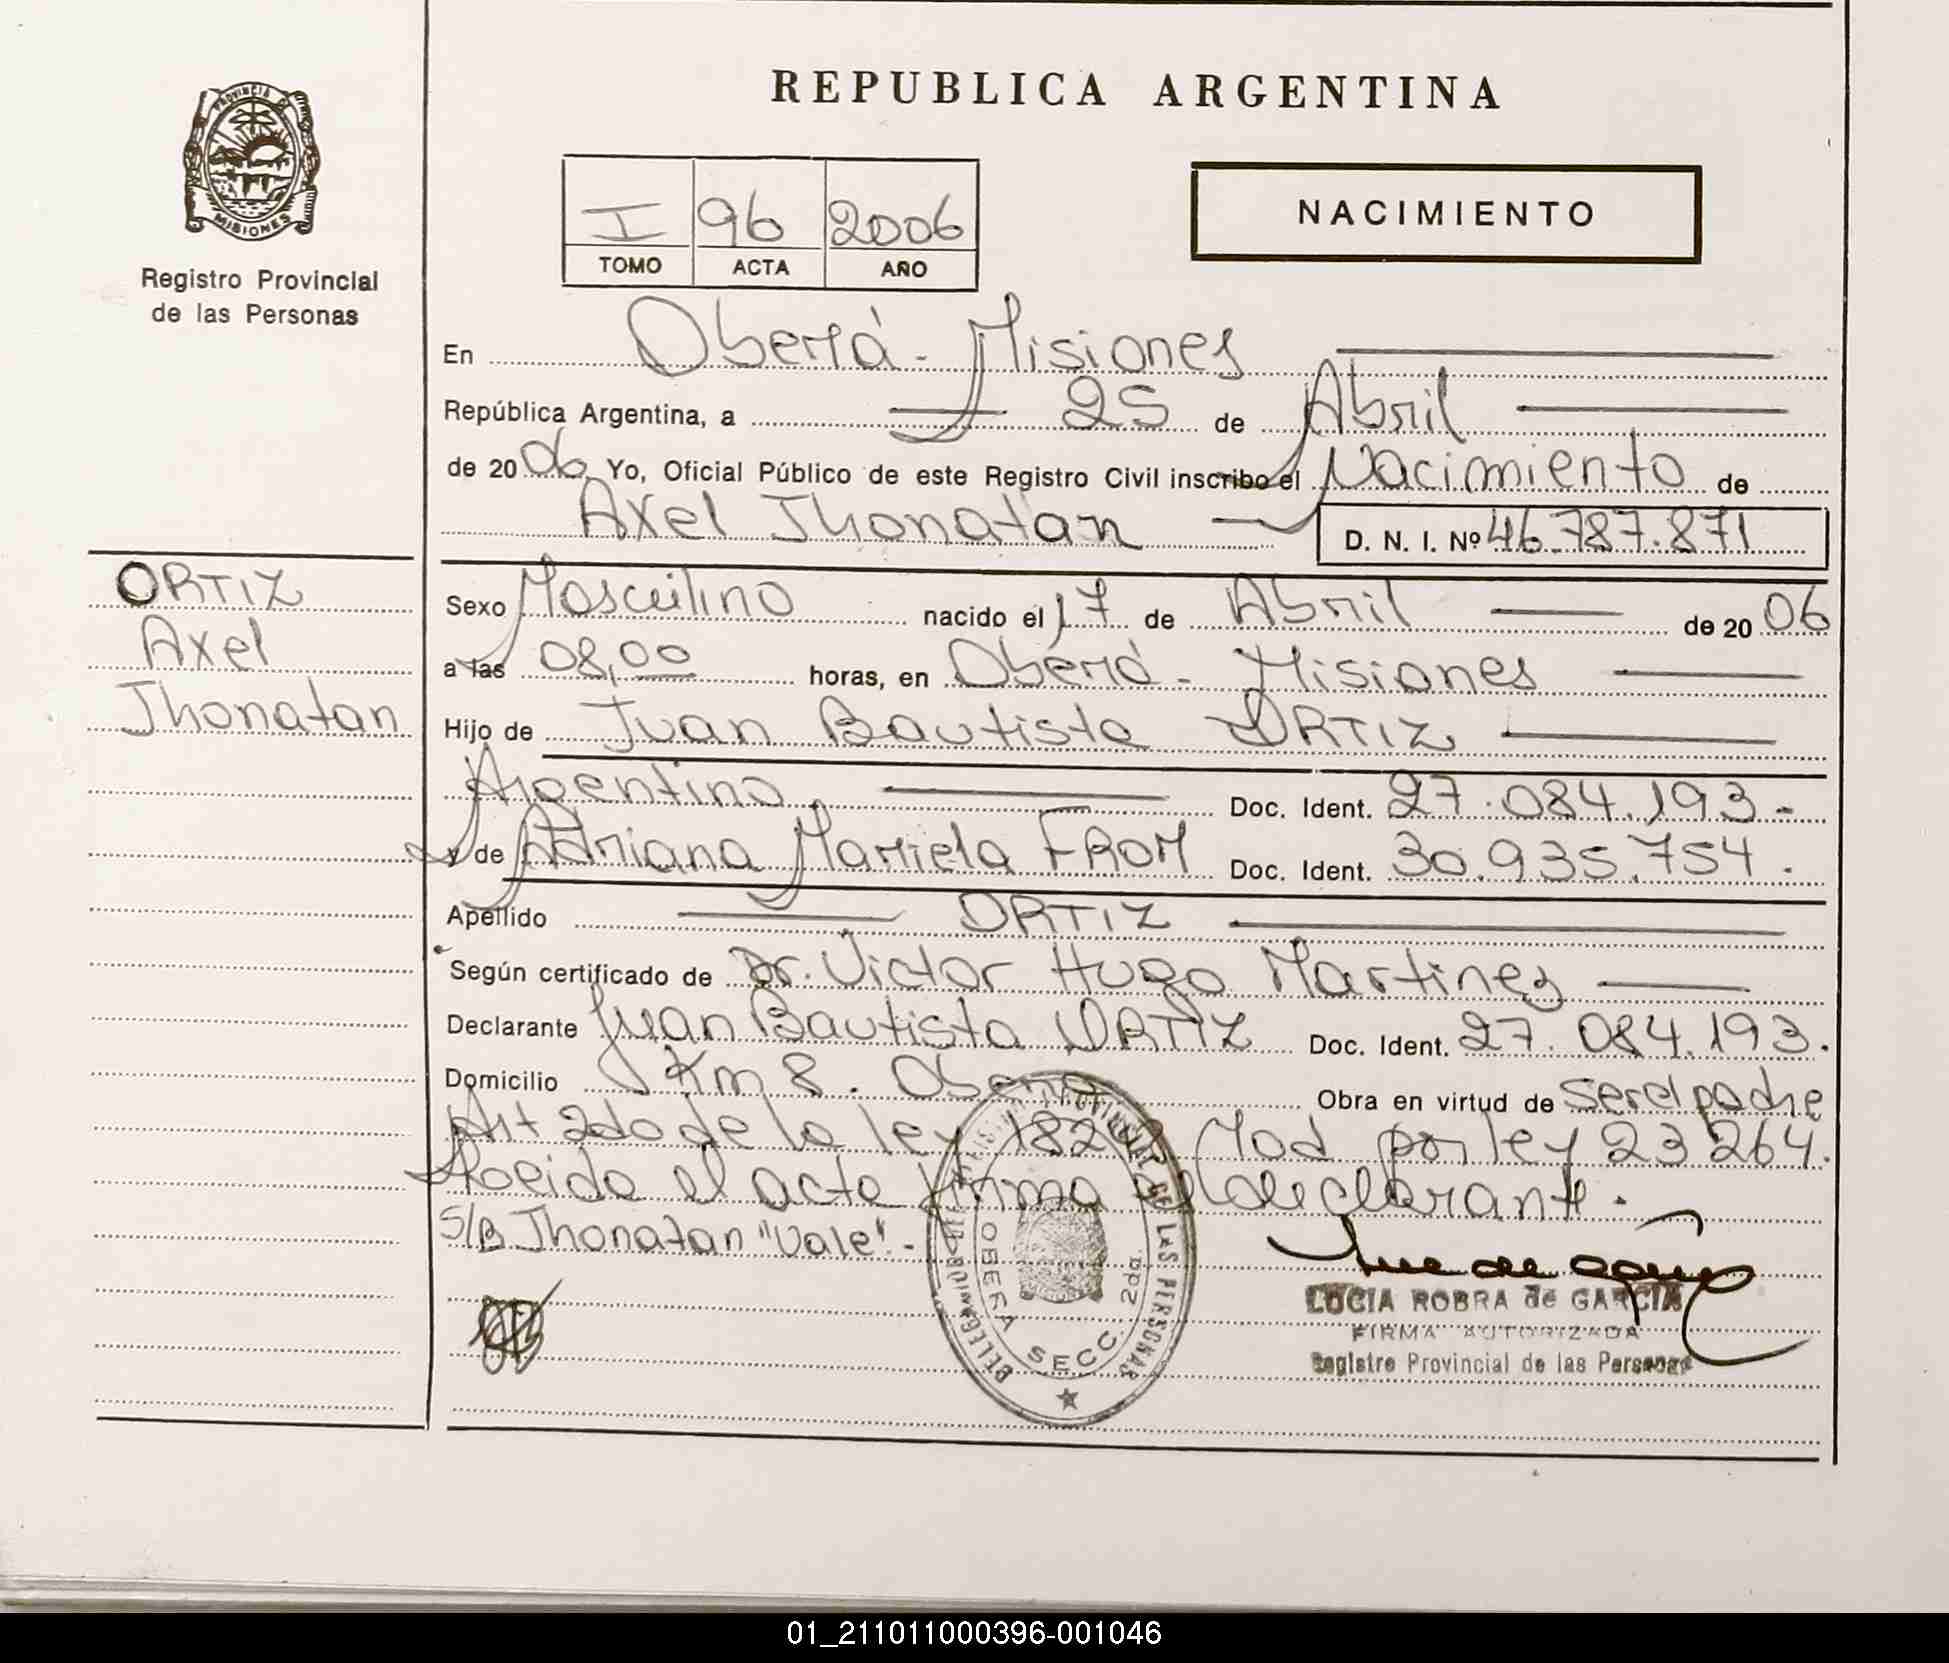 REPUBLICA ARGENTINA
PROVINCIA DE
MISIONES
Registro Provincial
de las Personas
I 96 2006
TOMO ACTA AÑO
NACIMIENTO
En Oberá - Misiones
República Argentina, a 25 de Abril
de 2006 Yo, Oficial Público de este Registro Civil inscribo el Nacimiento de
Axel Jhonatan D. N. I. Nº 46.787.871
ORTIZ
Axel
Jhonatan
Sexo Masculino nacido el 17 de Abril de 2006
a las 08,00 horas, en Oberá - Misiones
Hijo de Juan Bautista ORTIZ
Argentino Doc. Ident. 27.084.193-
y de Adriana Mariela FROM Doc. Ident. 30.935.754.
Apellido ORTIZ
Según certificado de Dr. Victor Hugo Martinez
Declarante Juan Bautista ORTIZ Doc. Ident. 27.084.193.
Domicilio Km 8. Oberá Obra en virtud de ser el padre
Art 2do de la ley 18248 Mod por ley 23264.
el acta firma el declarante.
S/B Jhonatan "Vale".-
OBERA SECC. 2da.
DE LAS PERSONAS
LUCIA ROBRA de GARCIA
FIRMA AUTORIZADA
Registro Provincial de las Personas
01_211011000396-001046